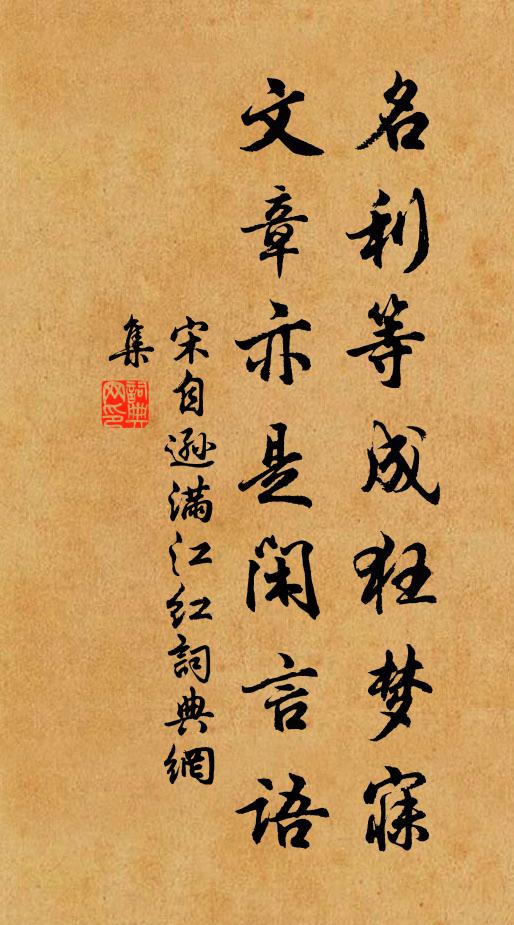 名利等成狂梦寐
文章亦是闲言语
宋自遜滿江红詞典網
集
詞典网印